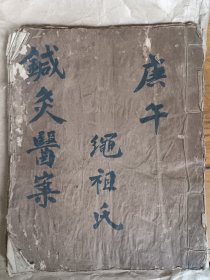 庚午
繩祖氏
鍼灸醫案